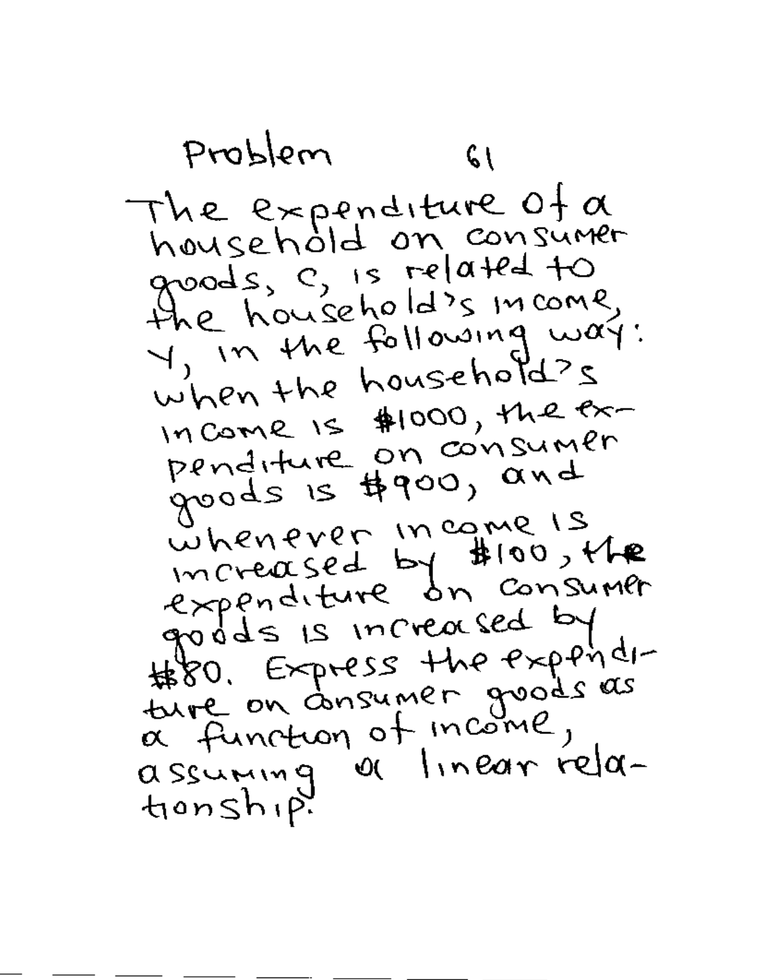 Problem 61
The expenditure of a
household on consumer
goods, C, is related to
the household's income,
Y, in the following way:
when the household's
income is $1000, the ex-
penditure on consumer
goods is $900, and
whenever income is
increased by $100, the
expenditure on consumer
goods is increased by
$80. Express the expendi-
ture on consumer goods as
a function of income,
assuming a linear rela-
tionship.